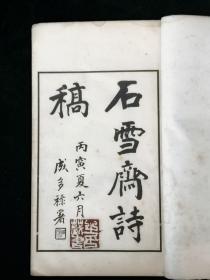 石雪齋詩
稿
丙寅夏六月
成多祿署